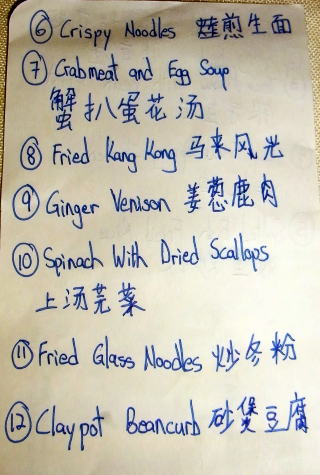 ⑥ Crispy Noodles 煎生面
⑦ Crabmeat and Egg Soup
蟹扒蛋花汤
⑧ Fried Kang Kong 马来风光
⑨ Ginger Venison 姜葱鹿肉
⑩ Spinach With Dried Scallops
上汤苋菜
⑪ Fried Glass Noodles 炒冬粉
⑫ Claypot Beancurb 砂煲豆腐